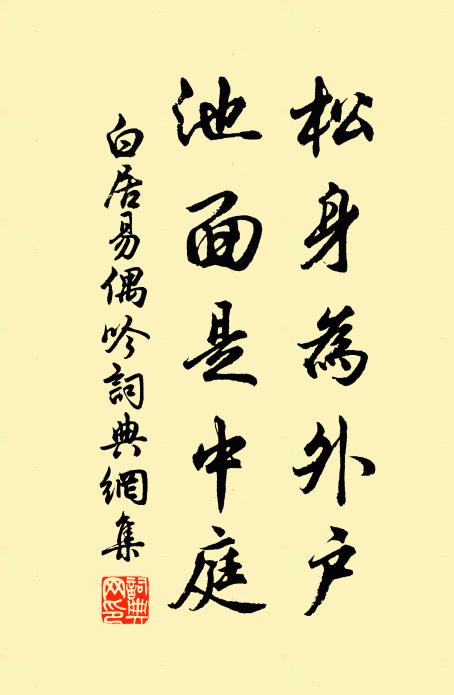 松身為外户
池面是中庭
白居易偶吟詞典網集
詞典
网印